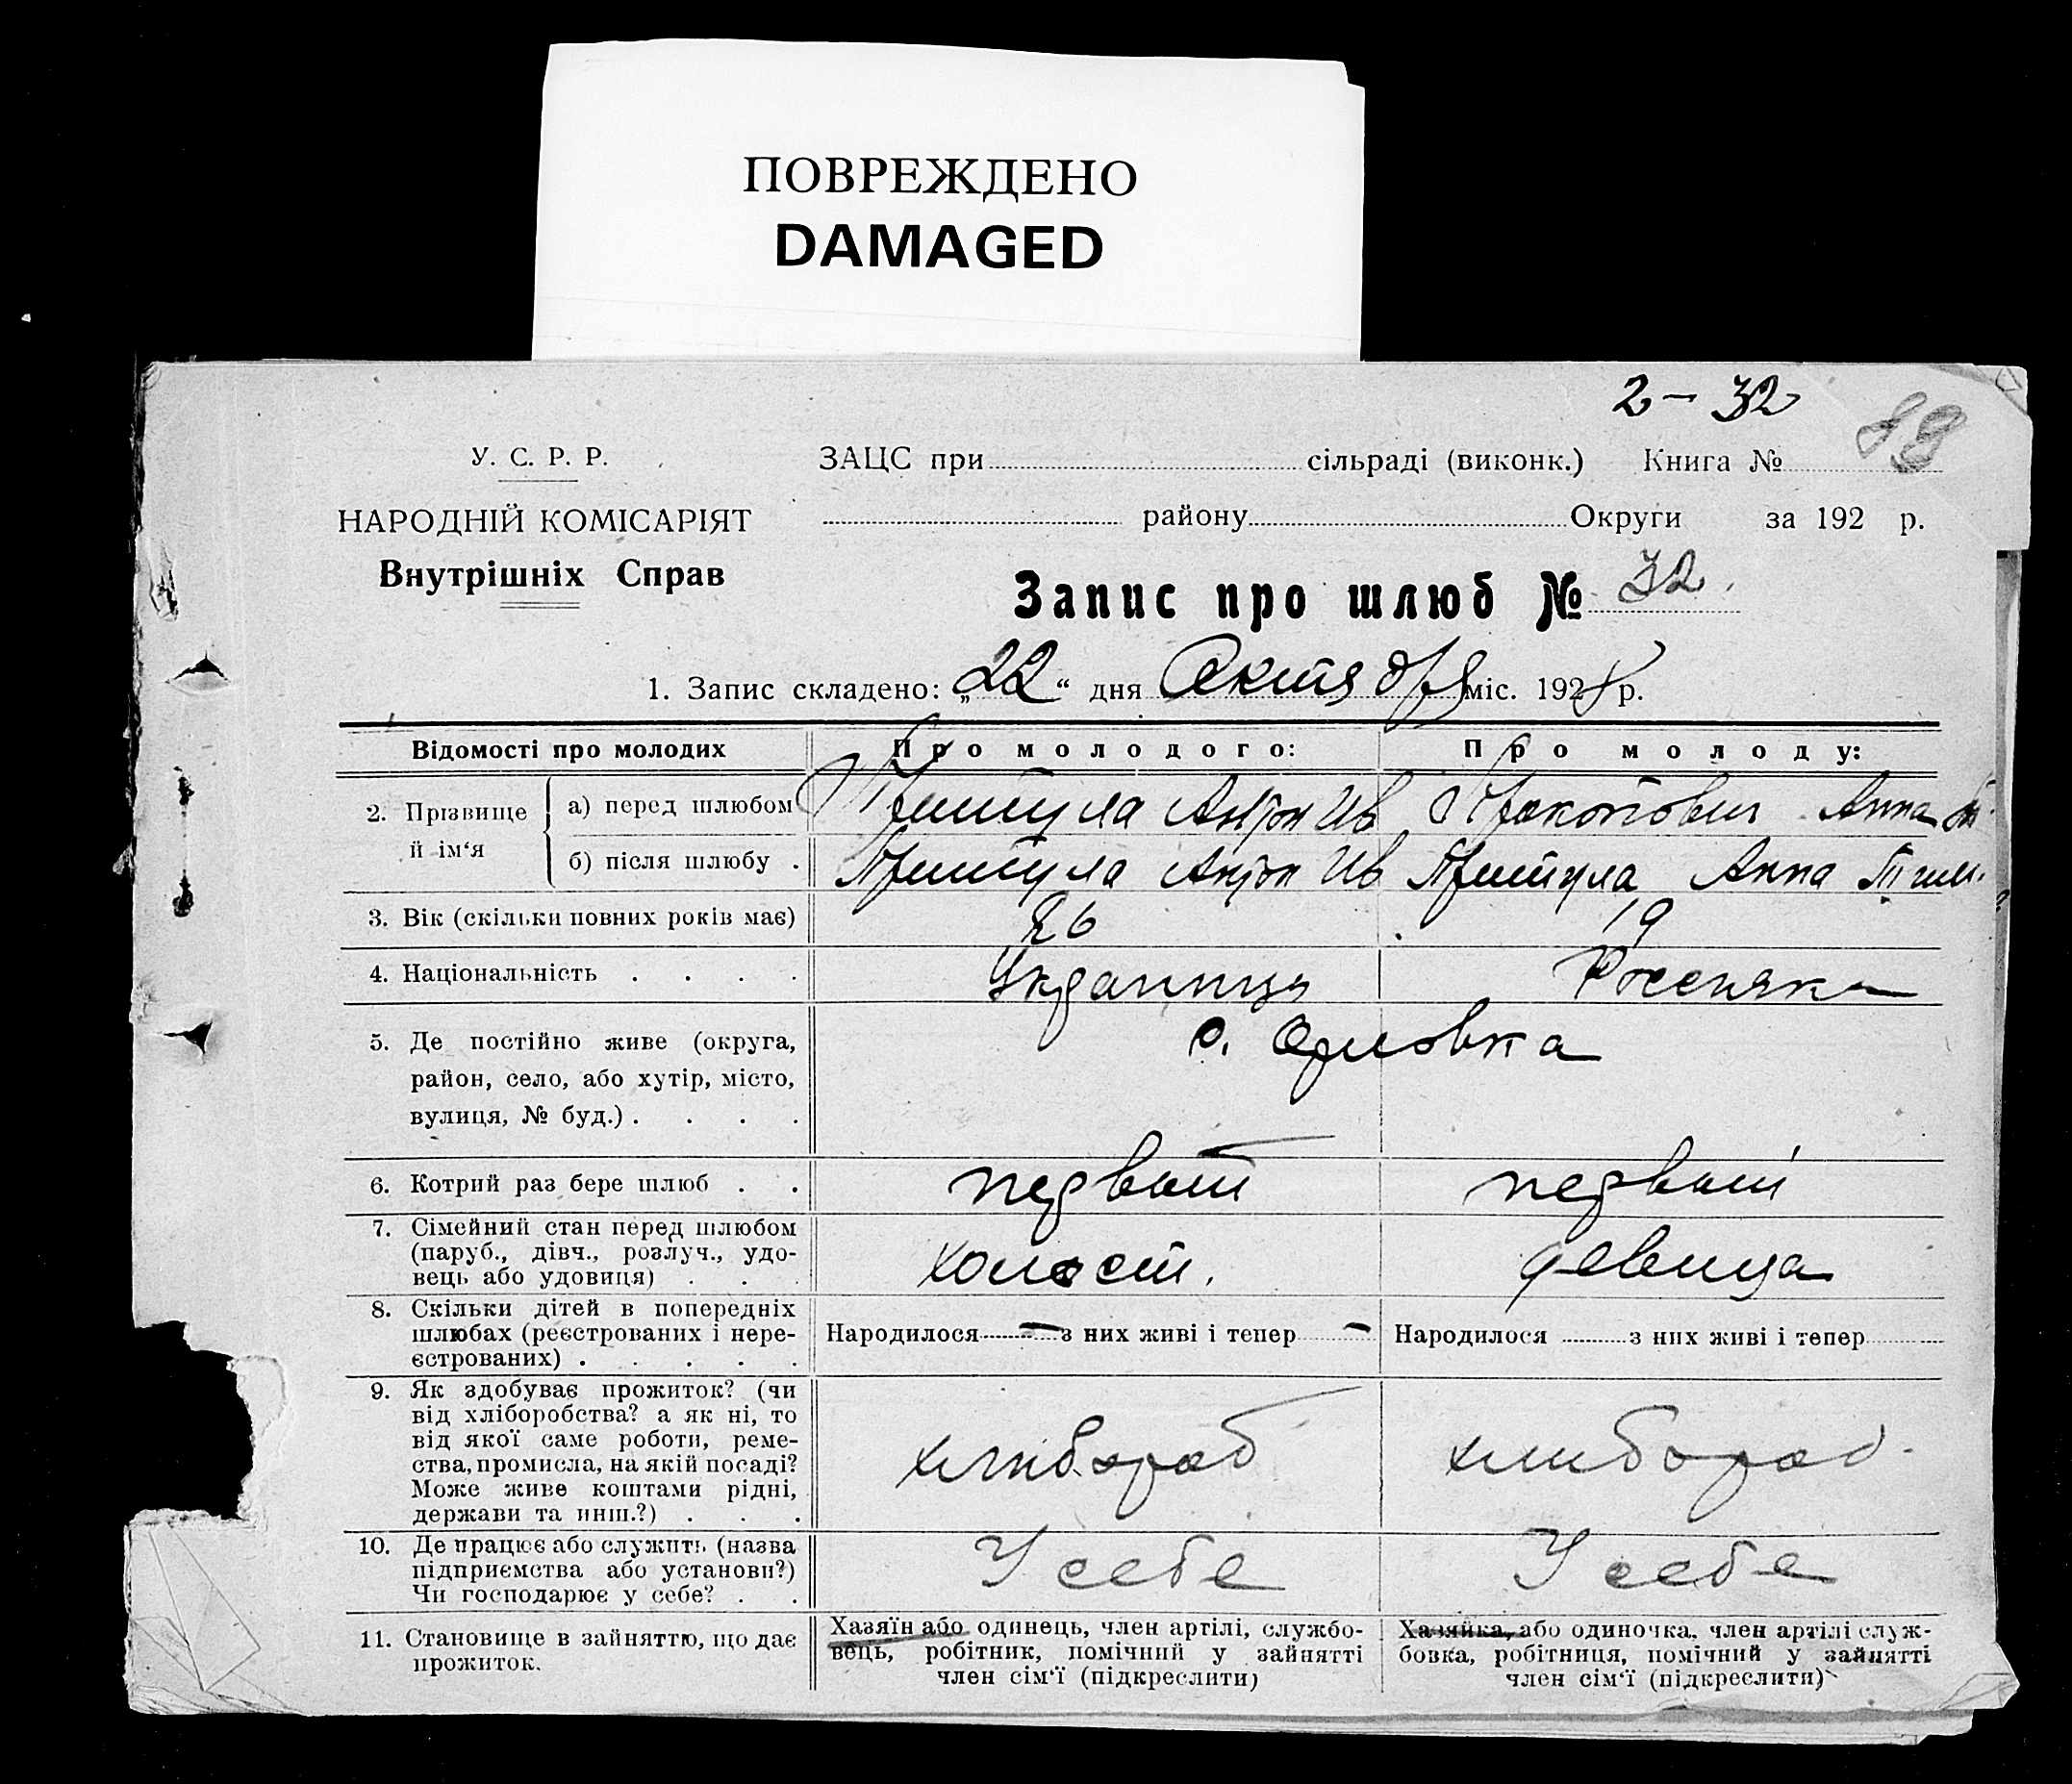 ПОВРЕЖДЕНО
DAMAGED
2 – 32
У. С. Р. Р.
НАРОДНІЙ КОМІСАРІЯТ
Внутрішніх Справ
ЗАЦС при сільраді (виконк.) Книга №
району Округи за 192 р.
Запис про шлюб № 32.
1. Запис складено: „22“ дня Октября міс. 192 р.
Відомості про молодих
Про молодого:
Про молоду:
2. Прізвище й ім‘я
а) перед шлюбом
Притула Антон Ив
Прокопович Анна
б) після шлюбу .
Притула Антон Ив
Притула Анна Тим.
3. Вік (скільки повних років має)
26
19
4. Національність . . . .
Украинць
5. Де постійно живе (округа,
район, село, або хутір, місто,
вулиця, № буд.) . . . .
с. Орловка
6. Котрий раз бере шлюб . .
первый
первый
7. Сімейний стан перед шлюбом
(паруб., дівч., розлуч., удо-
вець або удовиця) . .
холост.
девица
8. Скільки дітей в попередніх
шлюбах (реєстрованих і нере-
єстрованих) . . . . .
Народилося — з них живі і тепер —
Народилося з них живі і тепер
9. Як здобуває прожиток? (чи
від хліборобства? а як ні, то
від якої саме роботи, реме-
ства, промисла, на якій посаді?
Може живе коштами рідні,
держави та инш.?) . . .
хлибороб
хлибороб.
10. Де працює або служить (назва
підприємства або установи?)
Чи господарює у себе? . .
У себе
У себе
11. Становище в зайняттю, що дає
прожиток.
Хазяїн або одинець, член артілі, службо-
вець, робітник, помічний у зайнятті
член сім‘ї (підкреслити)
Хазяйка, або одиночка, член артілі служ-
бовка, робітниця, помічний у зайнятті
член сім‘ї (підкреслити)